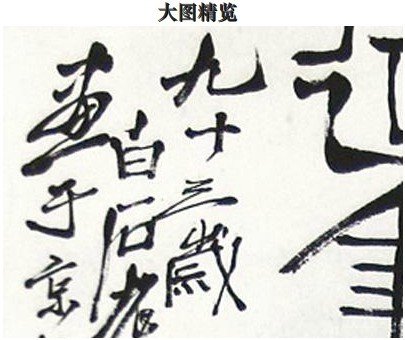 大图精览
九十三歲
白石老
画于京